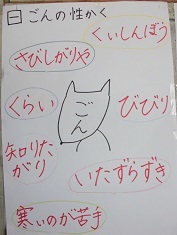 曰ごんの性かく
くいしんぼう
さびしがりや
くらい
ごん
びびり
知りた
がり
いたずらずき
寒いのが苦手